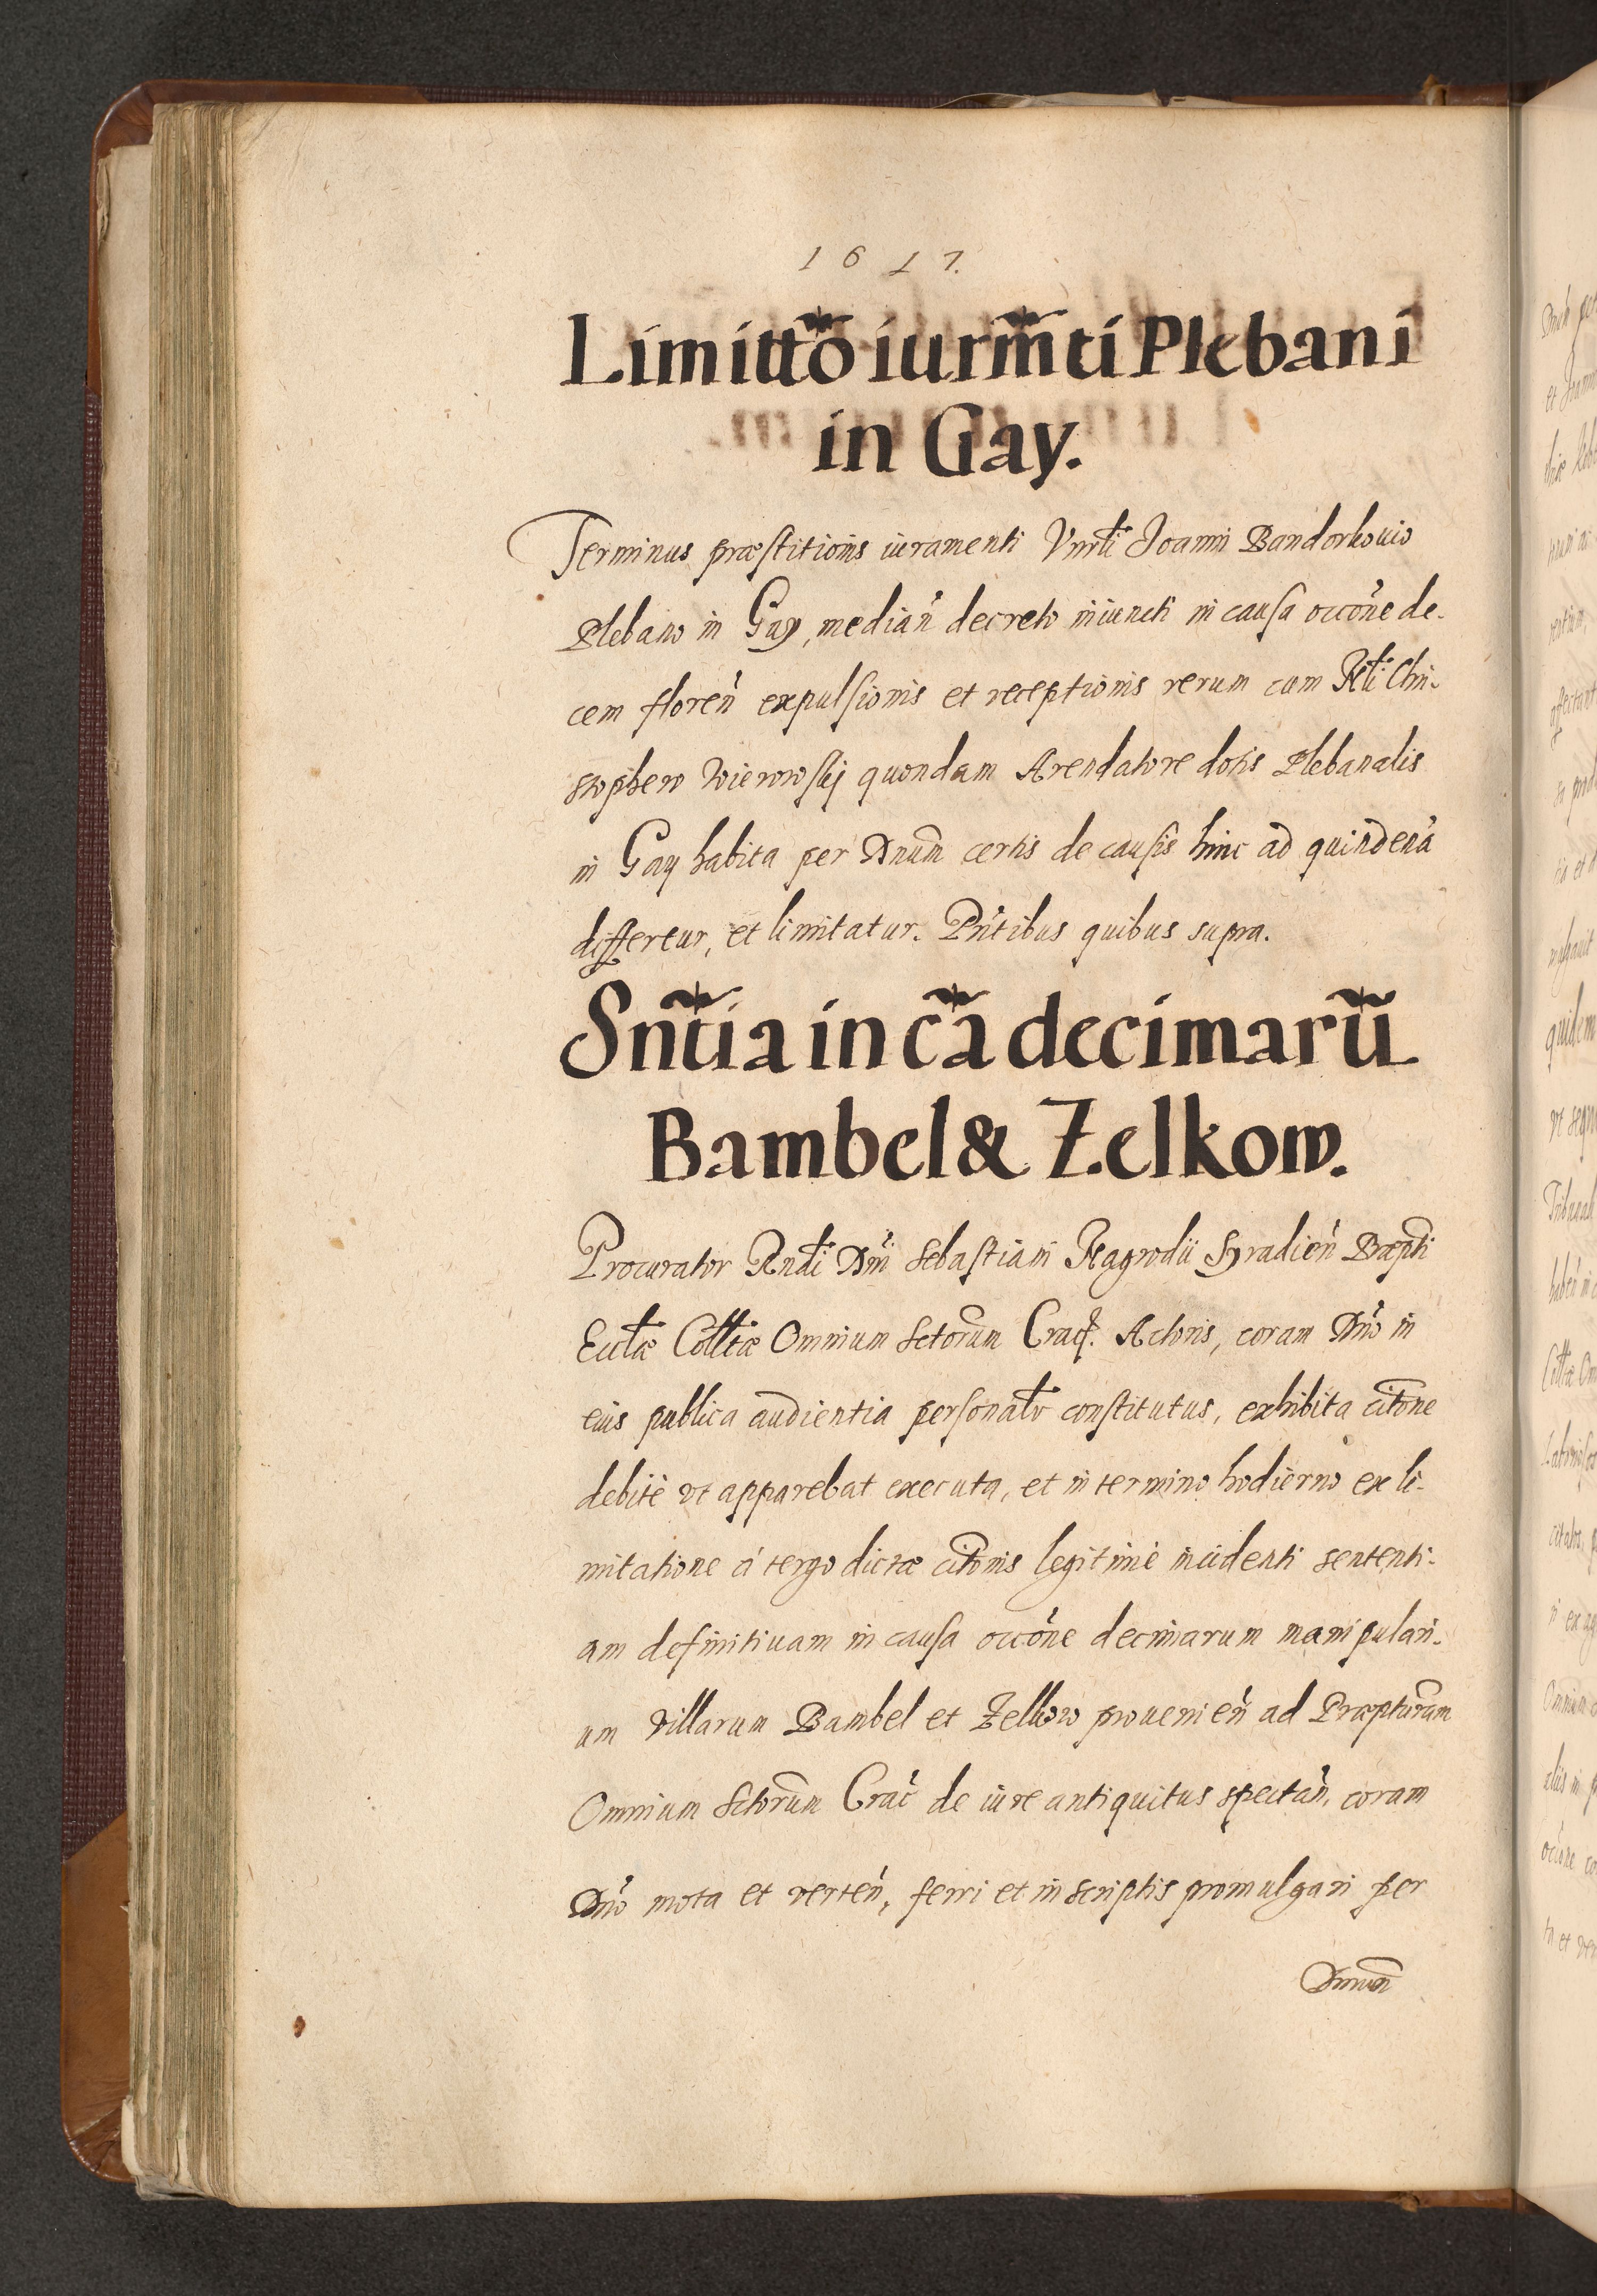 1617.
Limitt̃o iurm̃ti Plebani
in Gay.
Terminus præstitionis iuramenti Vnrłi Joanni Bandorkouio
Plebano in Gay, median̄ decreto iniuncti in causa occõne de-
cem floren̄ expulsionis et receptionis rerum cum Nłi Chri-
stophero Wierowskij quondam Arendatore dotis Plebanalis
in Gay habita per Dnum̃ certis de causis hinc ad quindenã
differtur, et limitatur. Pñtibus quibus supra.
Sñtia in cã decimarũ
Bambel & Zelkow.
Procurator Rndi Dñi Sebastiani Nagrodii Syradien̄ Præpti
Eccłæ Collłæ Omnium Sctorum Crać. Actoris, coram Dño in
eius publica audientia personałr constitutus, exhibita citõne
debitè vt apparebat executa, et in termino hodierno ex li-
mitatione á tergo dictæ citõnis legitimè incidenti sententi-
am definitiuam in causa occõne decimarum manipulari-
um villarum Bambel et Zelkow prouenien̄ ad Præpturam
Omnium Sctorum Crać de iure antiquitus spectan̄, coram
Dño mota et verten̄, ferri et in scriptis promulgari per
Dnum